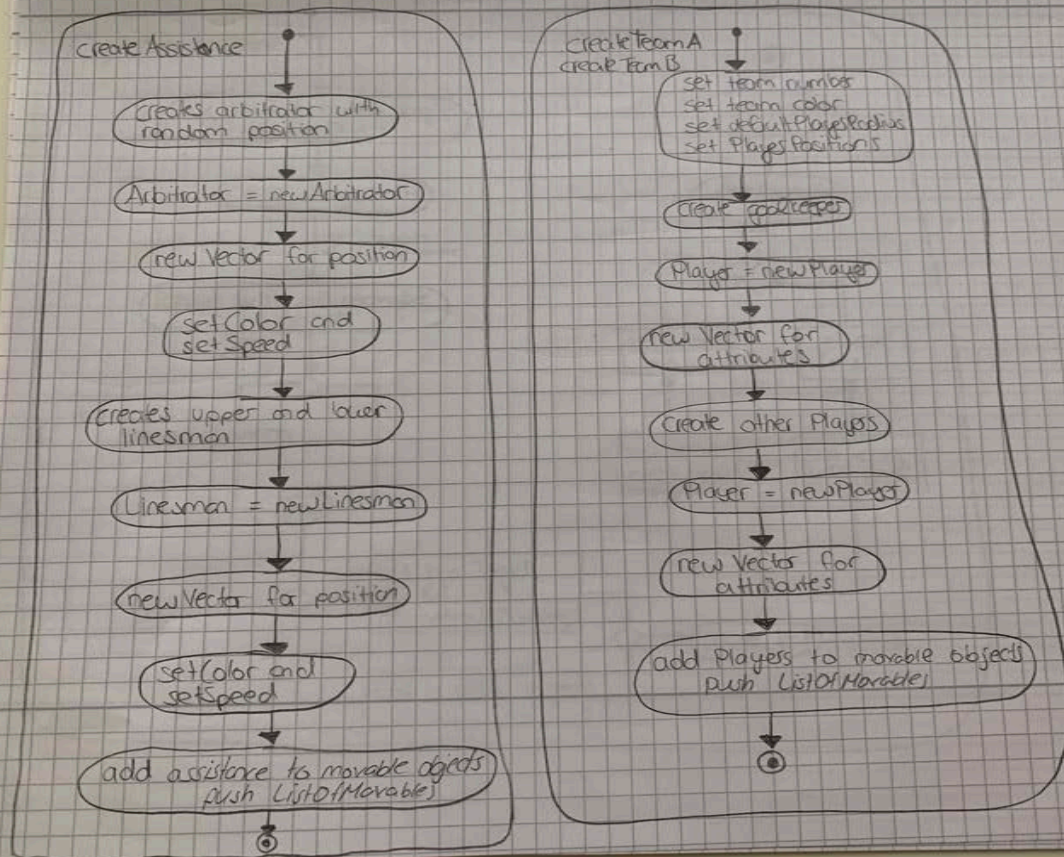 createAssistance
creates arbitrator with
random position
Arbitrator = newArbitrator
new Vector for position
setColor and
setSpeed
creates upper and lower
linesman
Linesman = newLinesman
newVector for position
setColor and
setSpeed
add assistance to movable ojects
push ListOfMovables
createTeamA
createTeamB
set team number
set team color
set defaultPlayerRadius
set PlayerPositions
create goalkeeper
Player = newPlayer
new Vector for
attributes
create other Players
Player = newPlayer
new Vector for
attributes
add Players to movable objects
push ListOfMovables